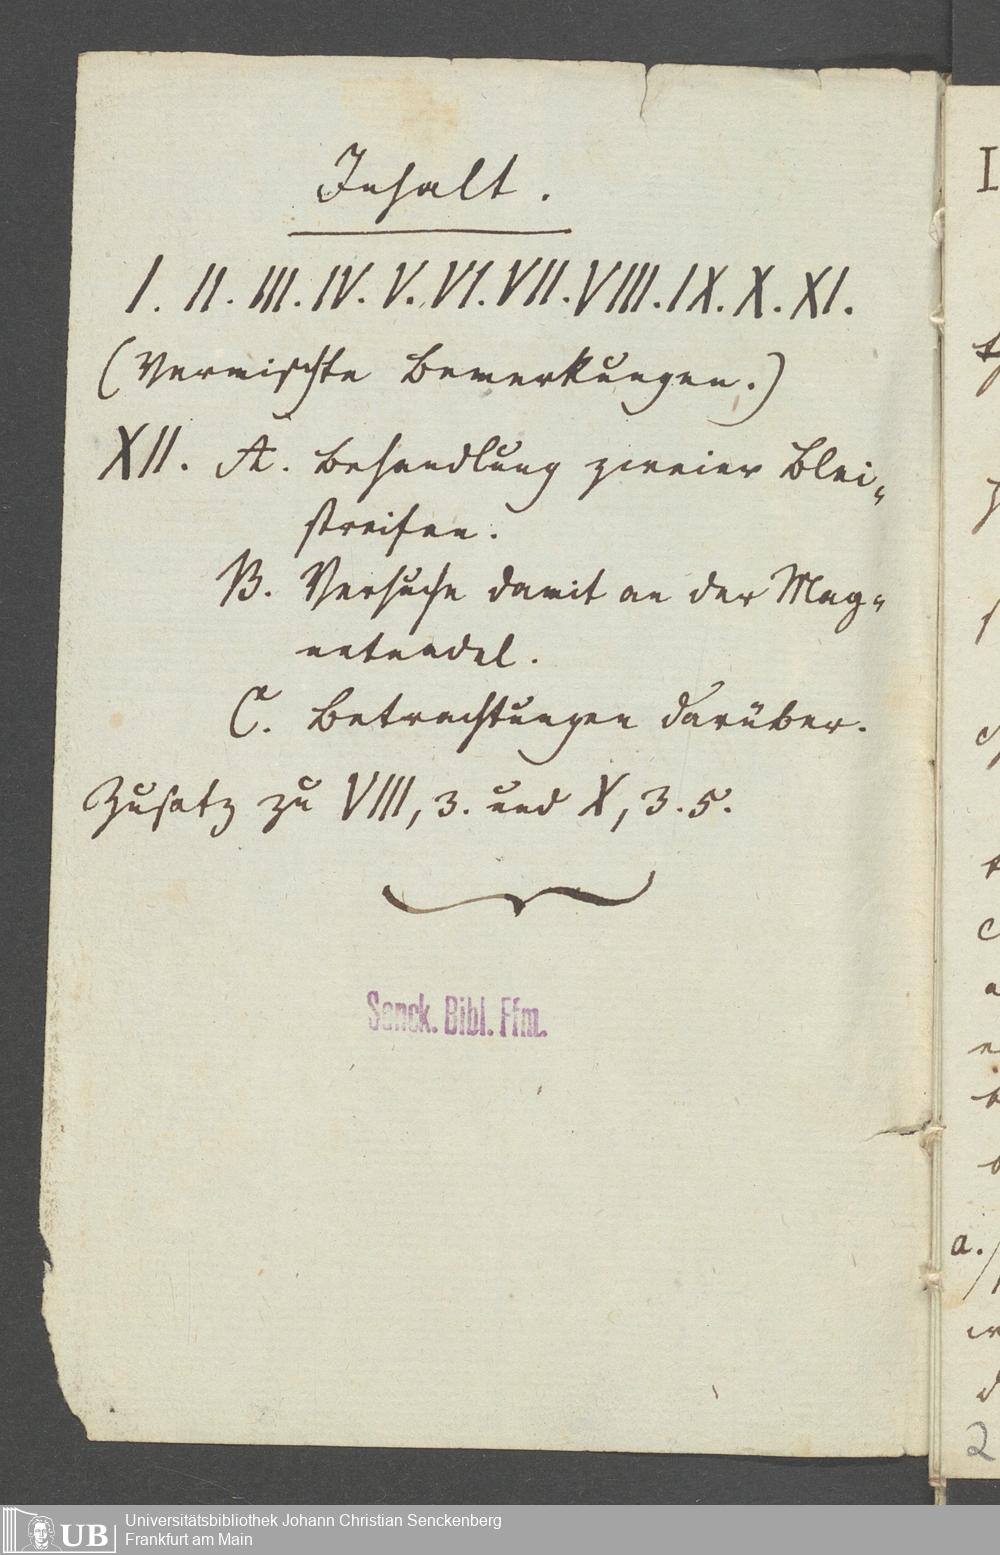 Inhalt.
I. II. III. IV. V. VI. VII. VIII. IX. X. XI.
(Vermischte Bemerkungen.)
XII. A. Behandlung zweier Blei-
streifen.
B. Versuche damit an der Mag-
netnadel.
C. Betrachtungen darüber.
Zusatz zu VIII, 3. und X, 3. 5.
Senck. Bibl. Ffm.
a.
2
UB
Universitätsbibliothek Johann Christian Senckenberg
Frankfurt am Main